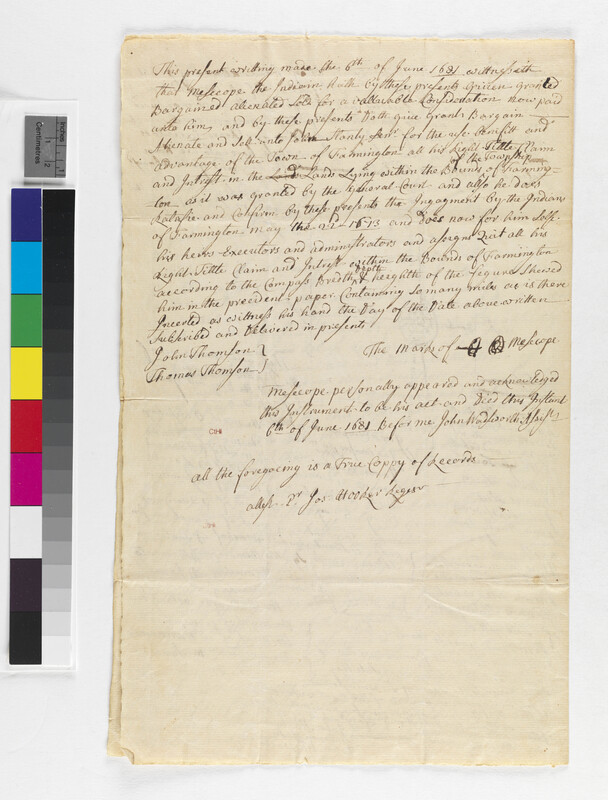 This present writting made the 6th of June 1681 wittnesseth
that Mesecope the Indian Hath by these presents Given granted
Bargained Alienated Sold for a valluable Consideration now paid
unto him, and by these presents Doth give Grant Bargain
Alienate and Sell unto John Stanly Senr for the use Benifitt and
Advantage of the Town of Farmington all his Right Tittle Claim
of the Township
and Intrest in the Lands Lying within the Bounds of Farming-
ton as it was granted by the General Court and allso he does
Ratafie and Confirm by these presents the Ingagment by the Indians
of Farmington may the 22d 1673 and does now for him Self
his heirs Executors and administrators and asigns Quit all his
Right Tittle Claim and Intrest within the Bounds of Farmington
according to the Compass Bredth Depth heighth of the feguer Shewed
him in the precedent paper Containing So many miles as is there
Incerted as wittness his hand the Day of the Date above written
Subscribed and Delivered in presents
John Thomson
The mark of Mesecope
Thomas Thomson
Mesecope personally appeared and acknowledged
this Instrument to be his act and Died this Instant
6th of June 1681 Before me John Wadsworth Assist
all the foregoeing is a True Coppy of Records
attest Pr Jos Hooker Regesr
Inches
Centimetres